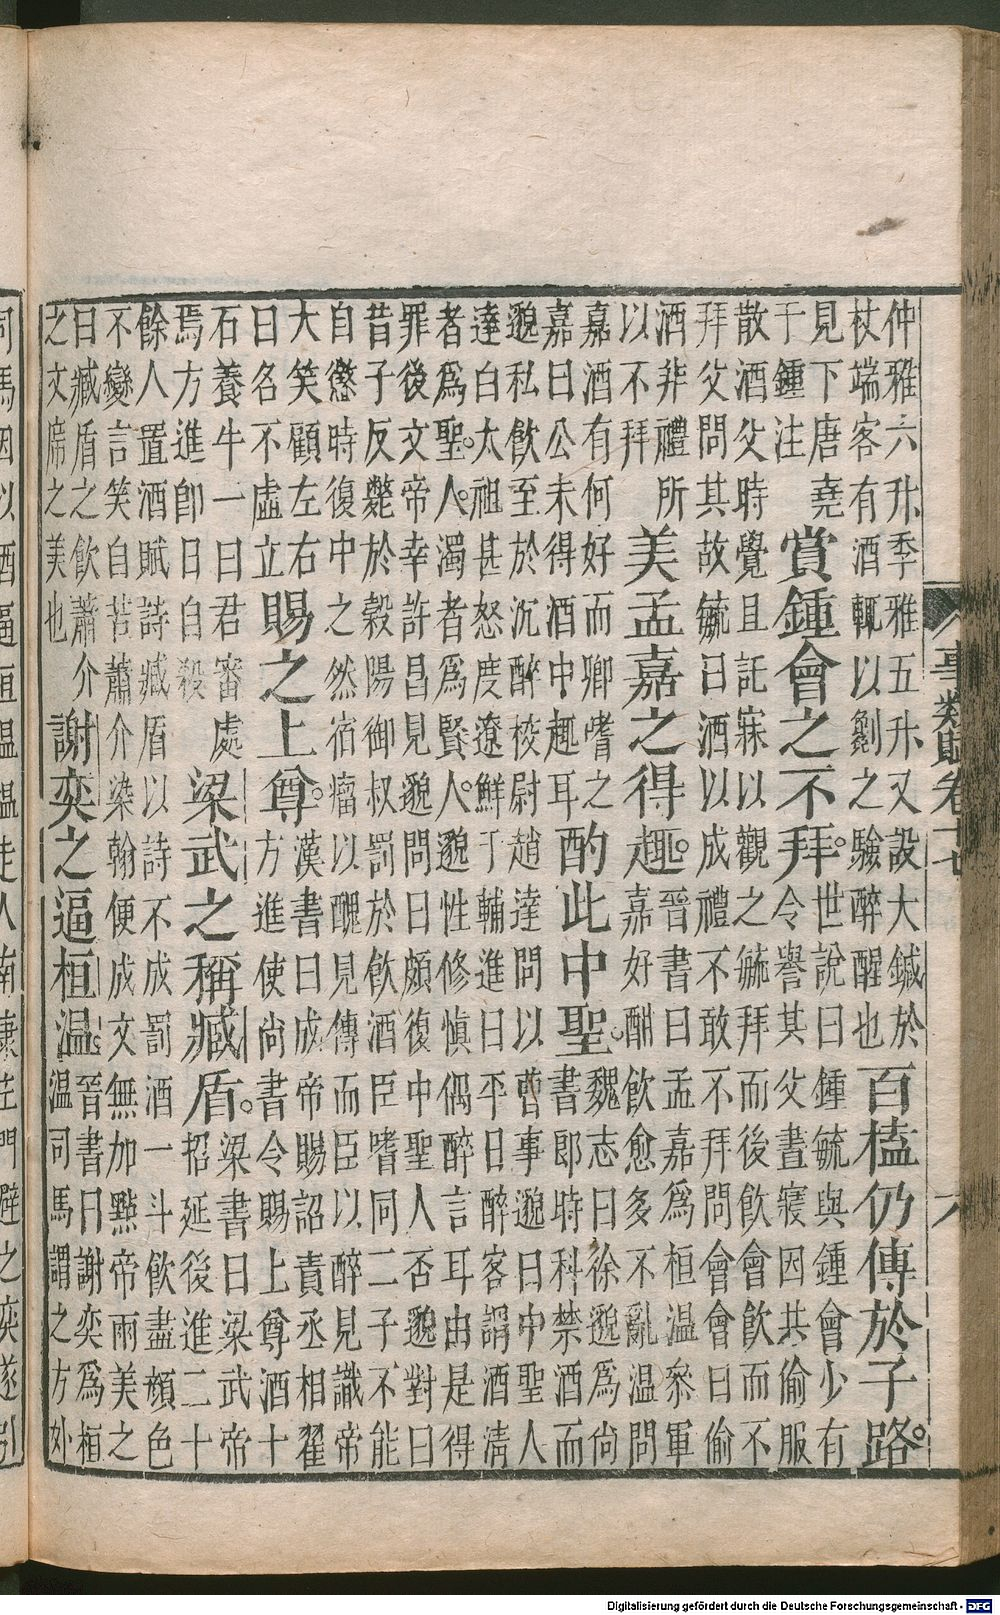 事類賦卷十七
六
仲雅六升季雅五升又設大鍼於
杖端客有酒輒以劖之驗醉醒也
百榼仍傳於子路。
見下唐堯
于鍾注
賞鍾會之不拜。
世說曰鍾毓與鍾會少有
令譽其父晝寢因共偷服
散酒父時覺且託寐以觀之毓拜而後飲會飲而不
拜父問其故毓曰酒以成禮不敢不拜問會會曰偷
酒非禮所
以不拜
美孟嘉之得趣。
晉書曰孟嘉爲桓溫叅軍
嘉好酣飲愈多不亂溫問
嘉酒有何好而卿嗜之
嘉曰公未得酒中趣耳
酌此中聖。
魏志曰徐邈爲尚
書郎時科禁酒而
邈私飲至於沉醉校尉趙達問以曹事邈曰中聖人
達白太祖甚怒度遼鮮于輔進曰平日醉客謂酒清
者爲聖人。濁者爲賢人。邈性修慎偶醉言耳由是得
罪後文帝幸許昌見邈問曰頗復中聖人否邈對曰
昔子反斃於穀陽御叔罰於飲酒臣嗜同二子不能
自懲時復中之然宿瘤以醜見傳而臣以醉見識帝
大笑顧左右
曰名不虛立
賜之上尊。
漢書曰成帝賜詔責丞相翟
方進使尚書令賜上尊酒十
石養牛一曰君審處
焉方進即日自殺
梁武之稱臧盾。
梁書曰梁武帝
招延後進二十
餘人置酒賦詩臧盾以詩不成罰酒一斗飲盡顏色
不變言笑自若蕭介染翰便成文無加點帝兩美之
曰臧盾之飲蕭介
之文席之美也
謝奕之逼桓溫。
晉書曰謝奕爲桓
溫司馬謂之方外
司馬因以酒逼桓溫溫走入南康主門避之奕遂引
Digitalisierung gefördert durch die Deutsche Forschungsgemeinschaft - DFG